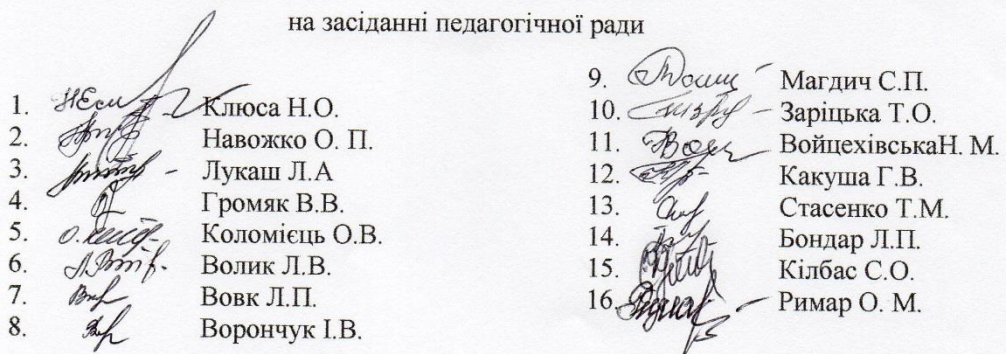 на засіданні педагогічної ради
1. Клюса Н.О.
2. Навожко О. П.
3. Лукаш Л.А
4. Громяк В.В.
5. Коломієць О.В.
6. Волик Л.В.
7. Вовк Л.П.
8. Ворончук І.В.
9. Магдич С.П.
10. Заріцька Т.О.
11. ВойцехівськаН. М.
12. Какуша Г.В.
13. Стасенко Т.М.
14. Бондар Л.П.
15. Кілбас С.О.
16. Римар О. М.